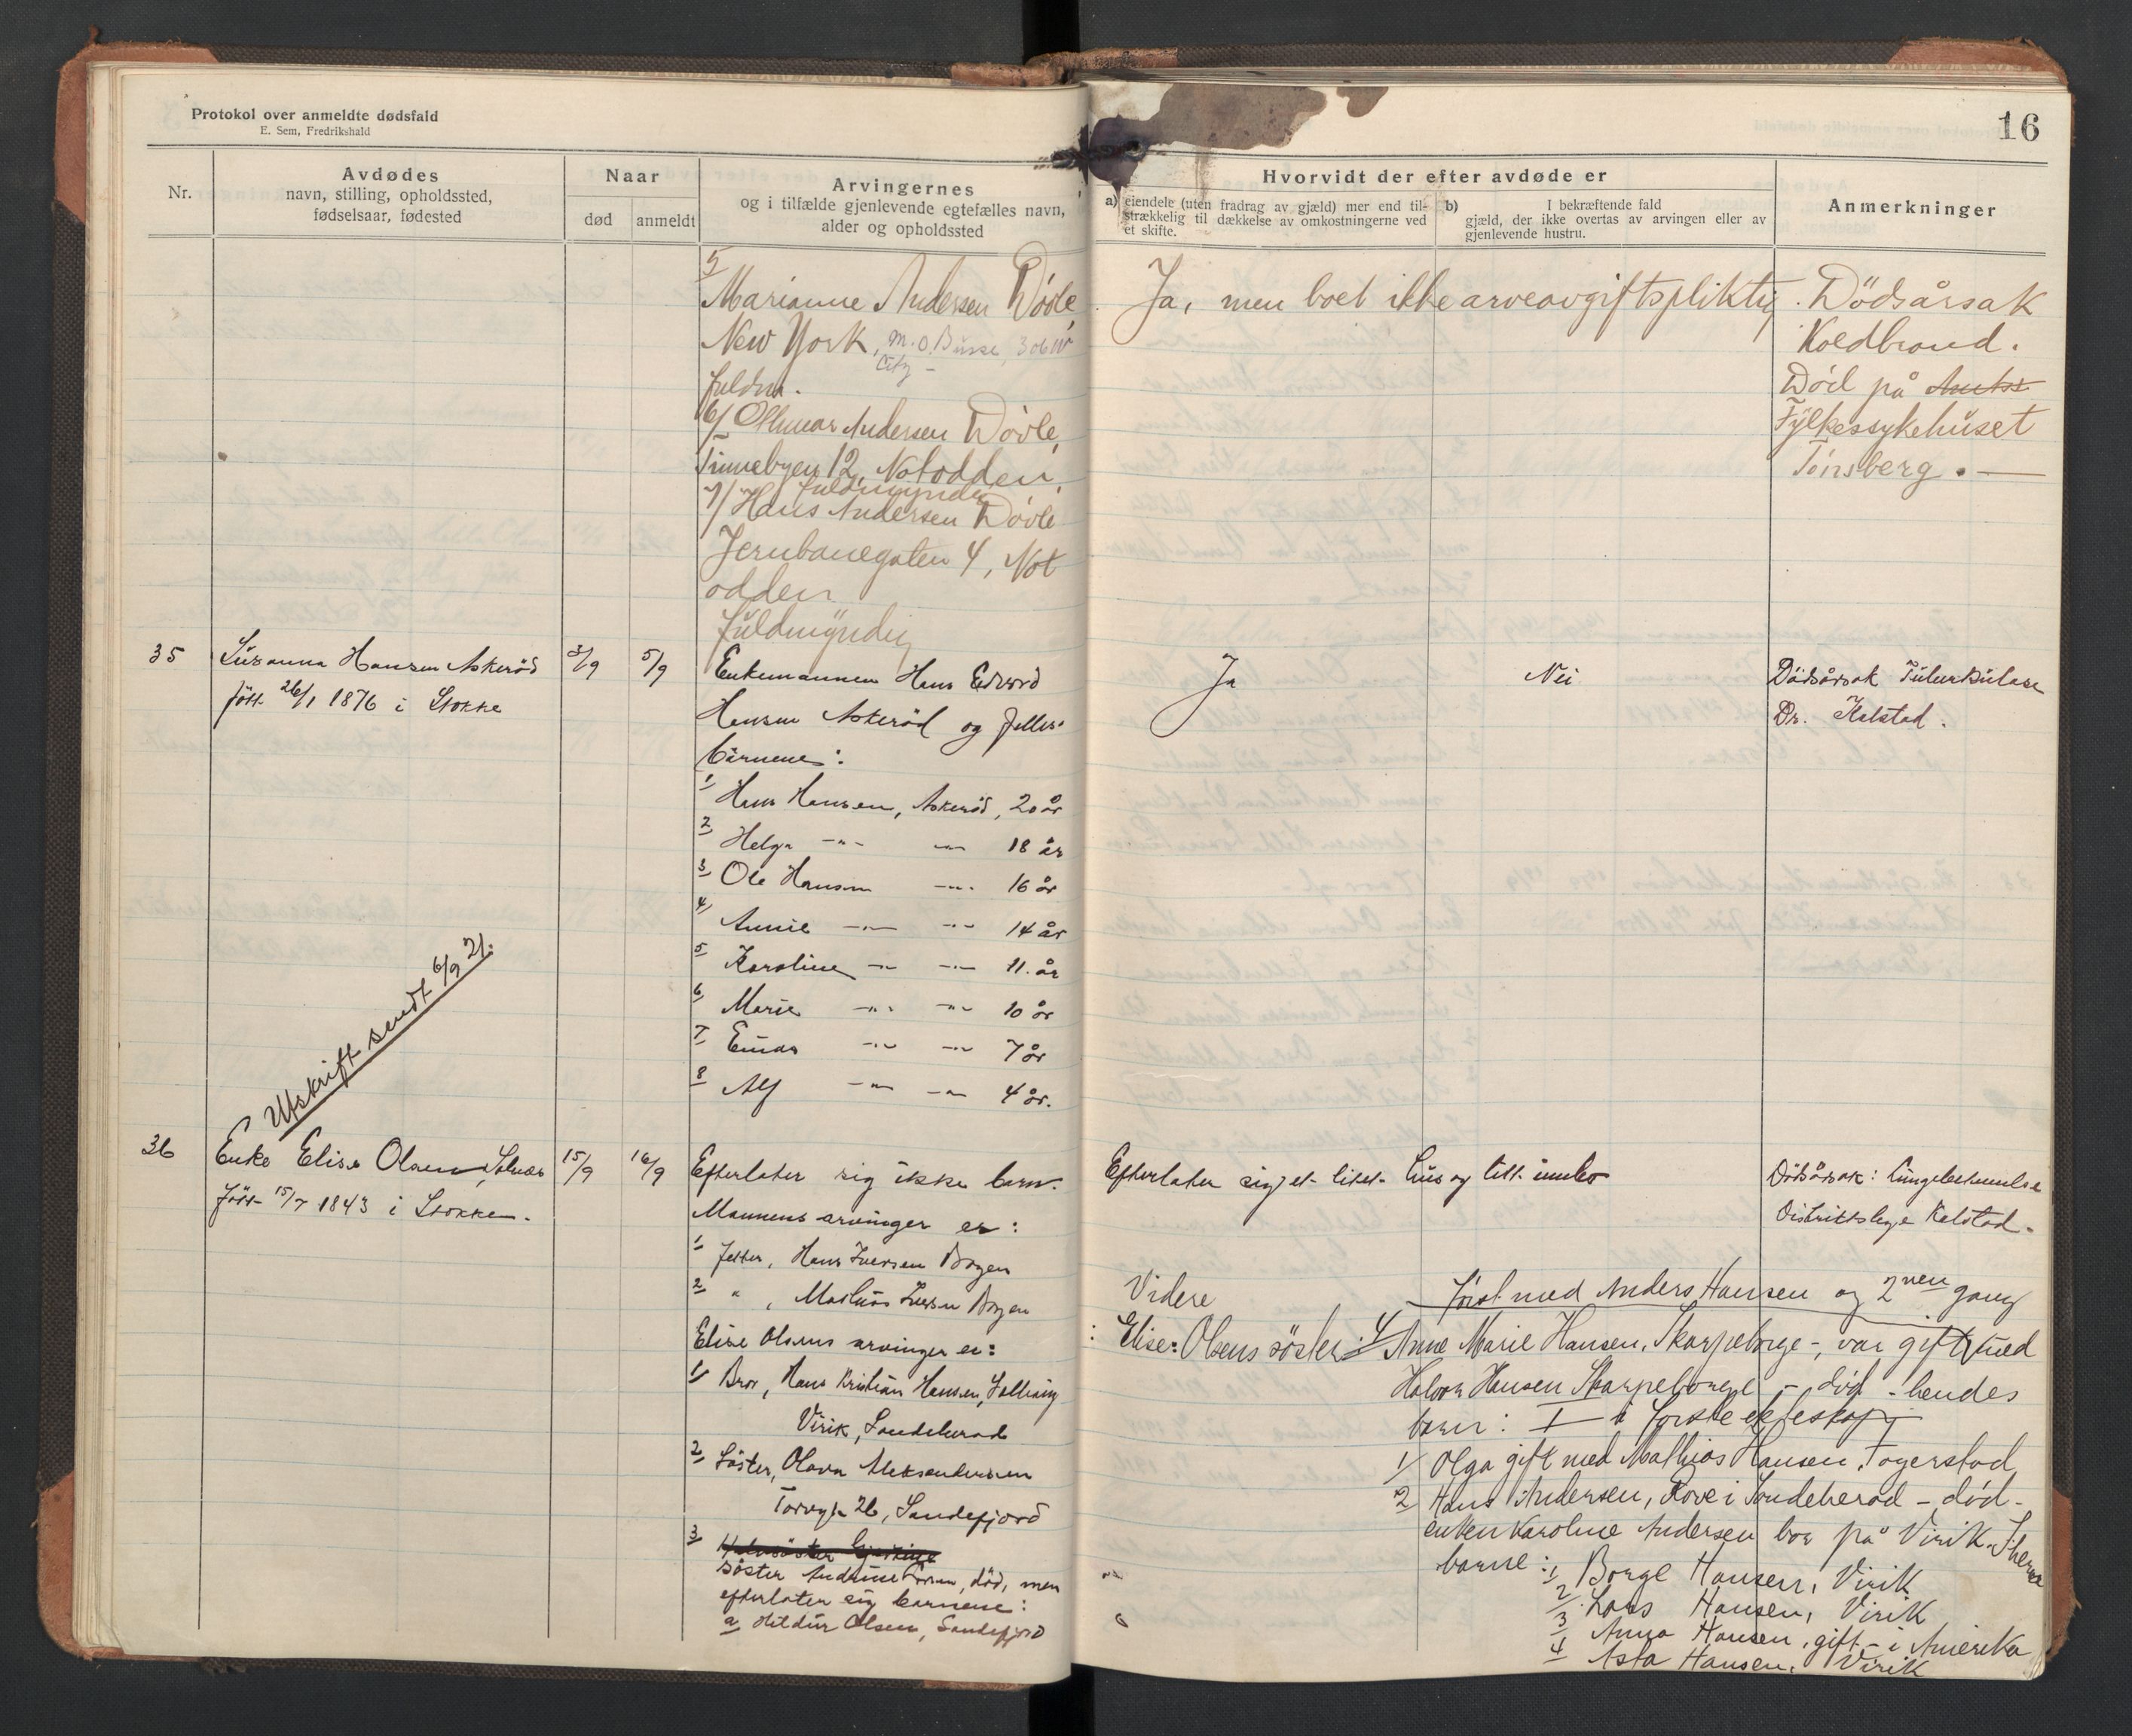 Protokol over anmeldte dødsfald
E. Sem, Fredrikshald
Nr.
Avdødes
navn, stilling, opholdssted,
fødselsaar, fødested
Naar
død
anmeldt
Arvingernes
og i tilfælde gjenlevende egtefælles navn,
alder og opholdssted
5
Marianne Andersen Døvle
New York, M.O. 306 W
City -
fuldm.
6/ Othmar Andersen Døvle,
Tinnebyen 12, Notodden,
fuldmyndig
7/ Hans Andersen Døvle
Jernbanegaten 4, Not
odden
fuldmyndig
35
Susanna Hansen Askeröd
född 26/1 1876 i Stokke
3/9
5/9
Enkemannen Hans Edvard
Hansen Askeröd og felles-
børnene:
1 Hans Hansen, Askeröd, 20 år
2 Helga -"- -"- 18 år
3 Ole Hansen -"- 16 år
4 Annie -"- -"- 14 år
5 Karoline -"- -"- 11 år
6 Marie -"- -"- 10 år
7 Einar -"- -"- 7 år
8 Alf -"- -"- 4 år.
Utskrift sendt 6/9 21.
36
Enke Elise Olsen, Solnes
född 15/7 1843 i Stokke.
15/9
16/9
Efterlater sig ikke barn.
Mannens arvinger er:
1 Fetter, Hans Iversen Bogen
2 " , Mathias Iversen Bogen
Elise Olsens arvinger er:
1 Bror, Hans Kristian Hansen,
Virik, Sandeherad
2 Søster, Olava Aleksandersen
Torvgt. 26, Sandefjord
3
søster Andrine Olsen, död, men
efterlater sig barnene:
a Hildur Olsen, Sandefjord
16
Hvorvidt der efter avdøde er
a) eiendele (uten fradrag av gjæld) mer end til-
strækkelig til dækkelse av omkostningerne ved
et skifte.
b) I bekræftende fald
gjæld, der ikke overtas av arvingen eller av
gjenlevende hustru.
Anmerkninger
Ja, men boet ikke arveavgiftspliktig.
Dödsårsak
Koldbrand.
Död på Amts
Fylkessykehuset
Tønsberg. —
Ja
Nei
Dödsårsak Tuberkulose
Dr. Kalstad.
Efterlater sig et litet hus og litt innbo
Dödsårsak: lungebetennelse
Distriktslege Kalstad.
Videre
først med Anders Hansen og 2nen gang
: Elise Olsens søster: 4/ Anne Marie Hansen, Skarpeborge -, var gift med
Halvor Hansen Skarpeborge - død - hendes
barn: I - i første ekteskap
1/ Olga gift med Mathias Hansen, Fogerstad
2 Hans Andersen, Rove i Sandeherad - død -
enken Karoline Andersen bor på Virik.
barne: 1 Borge Hansen, Virik
2 Lars Hansen, Virik
3 Anna Hansen, gift - i Amerika
4 Asta Hansen, Virik